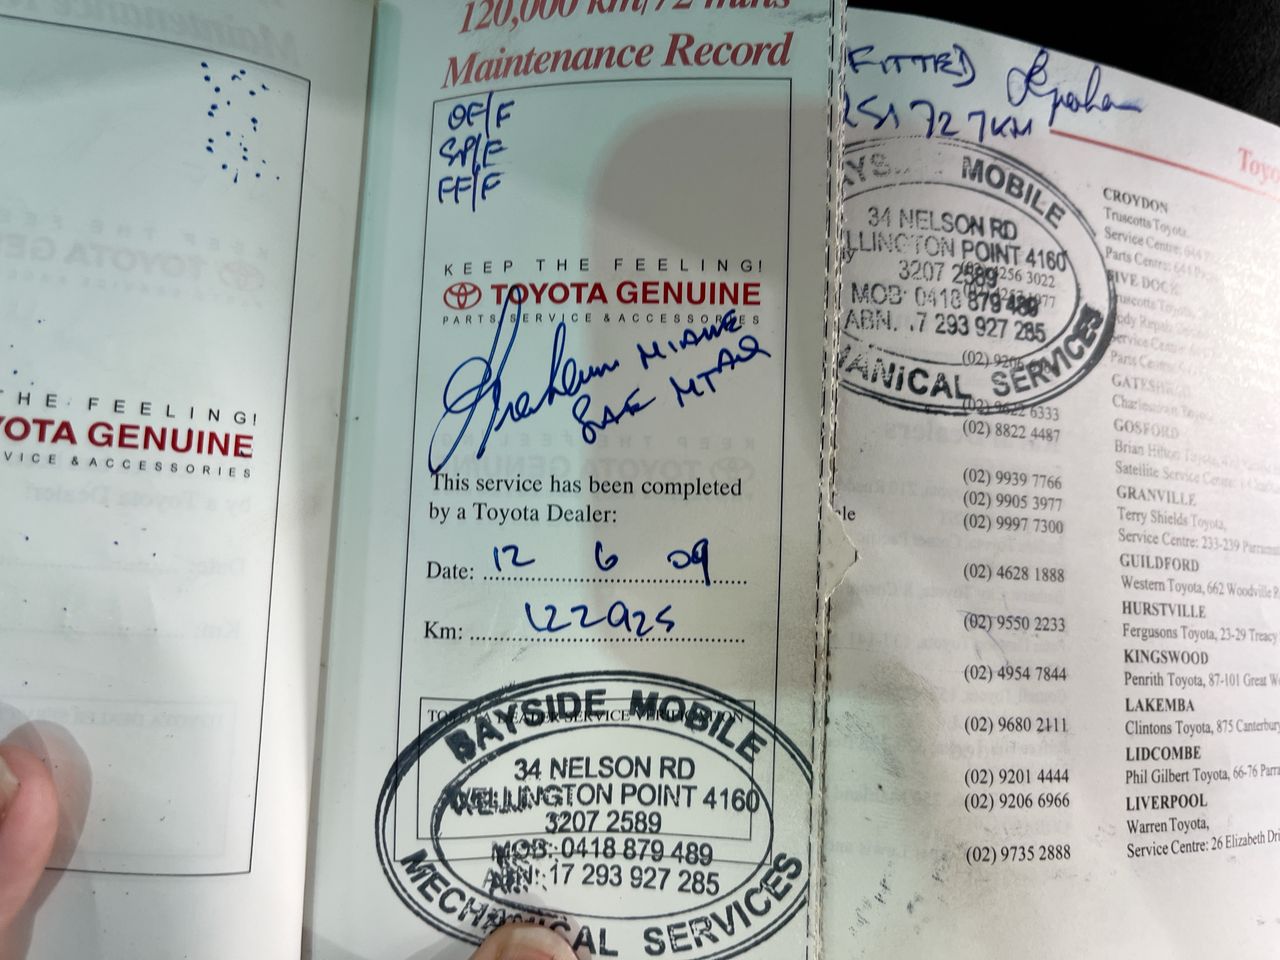 THE FEELING!
TOYOTA GENUINE
SERVICE & ACCESSORIES
120,000 km/72 mths
Maintenance Record
OF/F
SP/F
FF/F
KEEP THE FEELING!
TOYOTA GENUINE
PARTS SERVICE & ACCESSORIES
Graham MIAME
SAE MTAQ
This service has been completed
by a Toyota Dealer:
Date: 12 6 09
Km: 122925
TOYOTA DEALER SERVICE VERIFICATION
BAYSIDE MOBILE
34 NELSON RD
WELLINGTON POINT 4160
3207 2589
MOB: 0418 879 489
ABN: 17 293 927 285
MECHANICAL SERVICES
FITTED Graham
251 727KM
MOBILE
34 NELSON RD
LLINGTON POINT 4160
3207 2589
MOB: 0418 879 489
ABN. .7 293 927 285
ANICAL SERVICES
(02) 8822 4487
(02) 9939 7766
(02) 9905 3977
(02) 9997 7300
(02) 4628 1888
(02) 9550 2233
(02) 4954 7844
(02) 9680 2111
(02) 9201 4444
(02) 9206 6966
(02) 9735 2888
Toyo
CROYDON
Truscotts Toyota,
Service Centre: 644
Parts Centre: 644
FIVE DOCK
Truscotts Toyota,
Body Repair
Service Centre:
Parts Centre:
GATESHEAD
Charlestown Toyota
GOSFORD
Brian Hilton Toyota,
Satellite Service Centre:
GRANVILLE
Terry Shields Toyota,
Service Centre: 233-239 Parrama
GUILDFORD
Western Toyota, 662 Woodville R
HURSTVILLE
Fergusons Toyota, 23-29 Treacy
KINGSWOOD
Penrith Toyota, 87-101 Great W
LAKEMBA
Clintons Toyota, 875 Canterbury
LIDCOMBE
Phil Gilbert Toyota, 66-76 Parra
LIVERPOOL
Warren Toyota,
Service Centre: 26 Elizabeth Dri